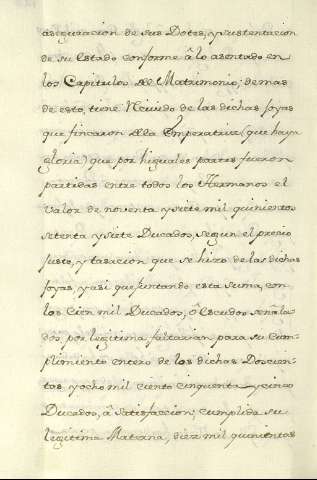 aseguracion de sus Dotes, y sustentacion
de su estado conforme â lo asentado en
los Capitulos del Matrimonio; demas
de esto, tiene Recivido de las dichas joyas
que fincaron de la Emperatriz (que haya
gloria) que por higuales partes fueron
partidas entre todos los Hermanos el
valor de noventa y siete mil quinientos
setenta y siete Ducados, segun el precio
justo, y tasacion que se hizo de las dichas
joyas, y asi que juntando esta suma, con
los Cien mil Ducados, ô Escudos señala-
dos por legitima faltarian para su Cum-
plimiento entero de los dichos Doscien-
tos y ocho mil ciento cinquenta y cinco
Ducados, â satisfaccion, cumplida su
legitima Materna, diez mil quinientos